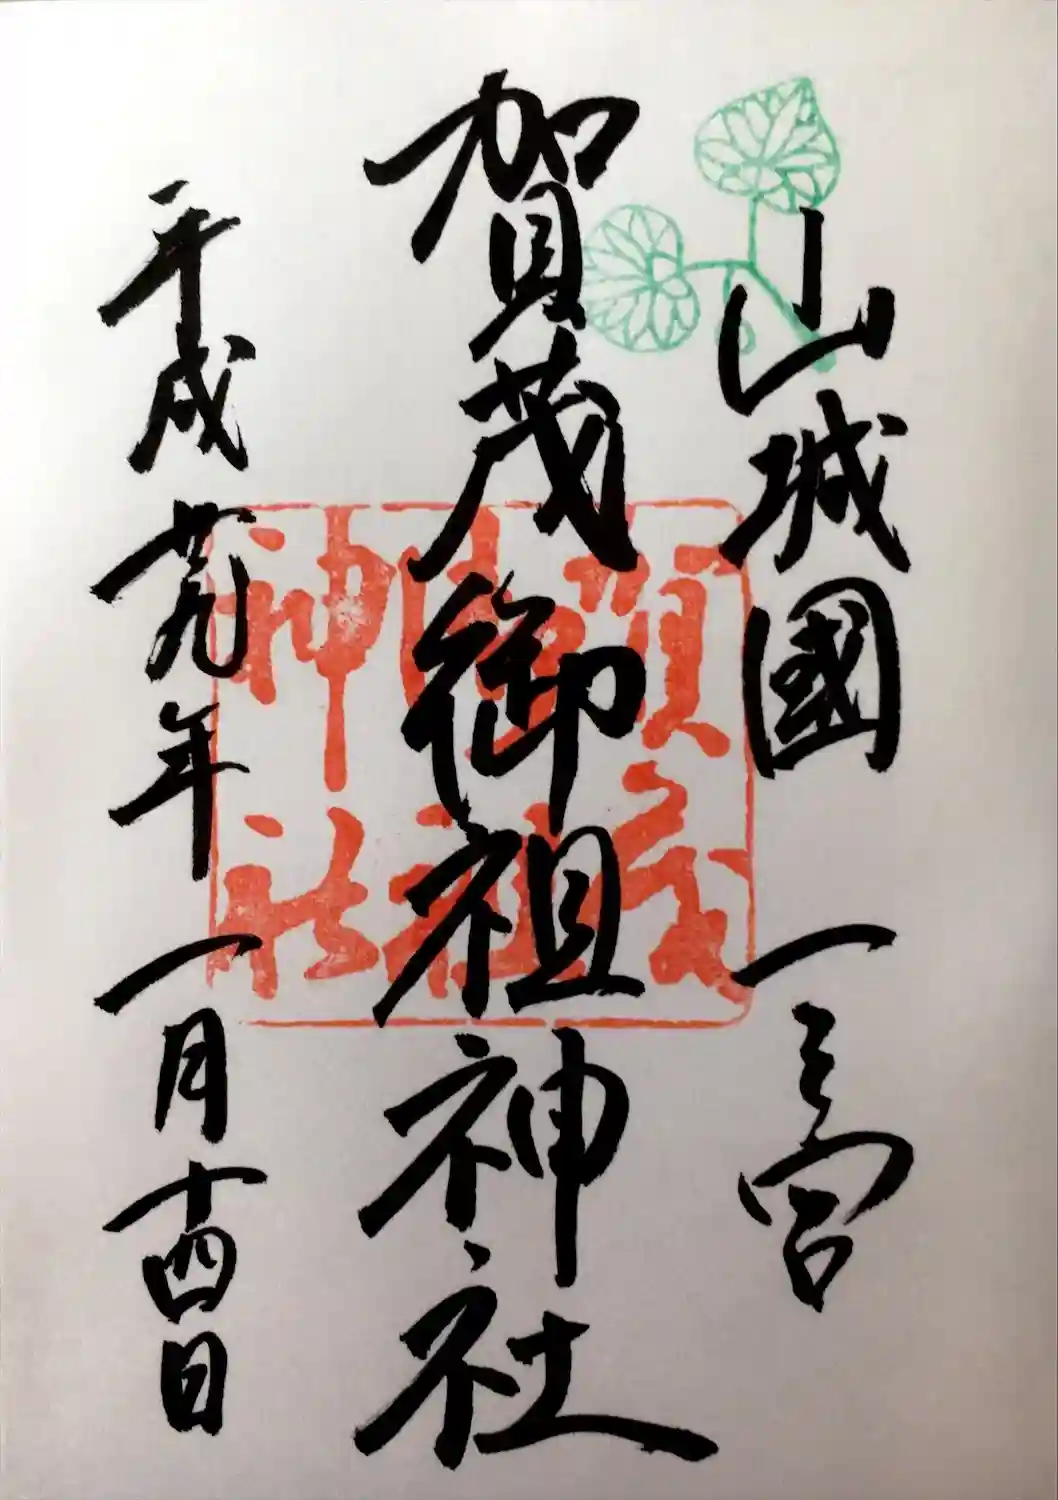 山城國一之宮
賀茂御祖神社
平成廿九年一月十四日
賀茂御祖神社